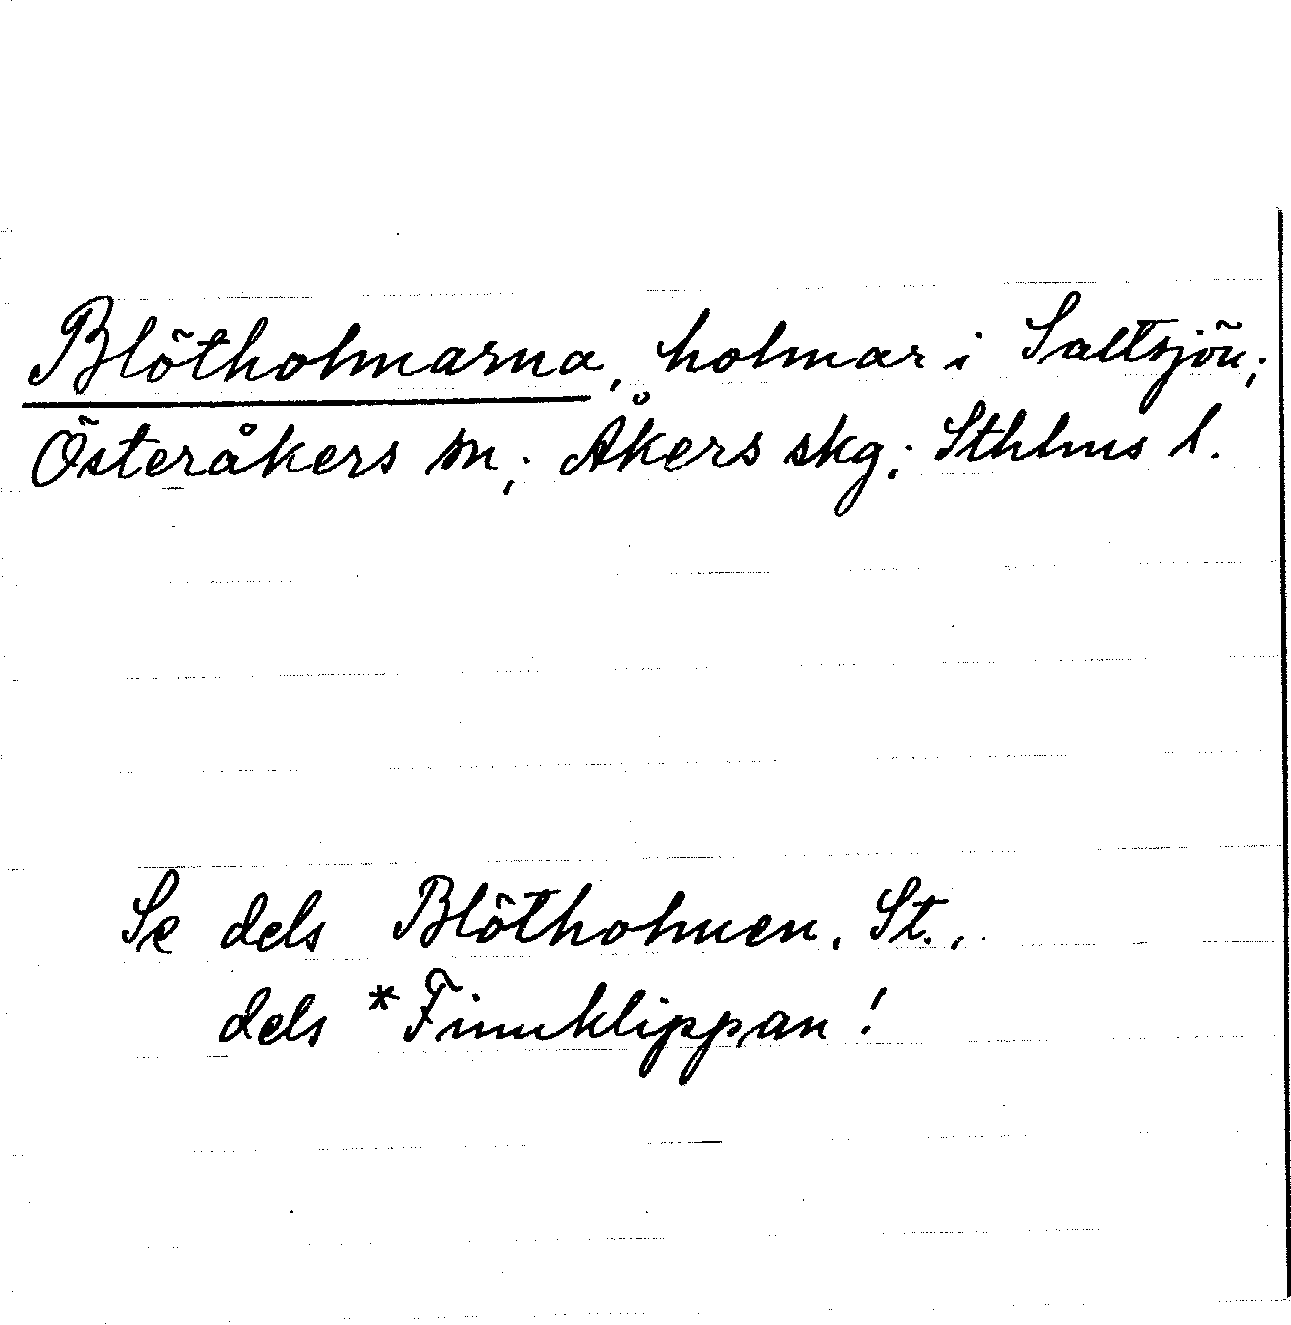 Blötholmarna, holmar i Saltsjön;
Österåkers sn; Åkers skg; Sthlms l.
Se dels Blötholmen, St.,
dels *Finnklippan!